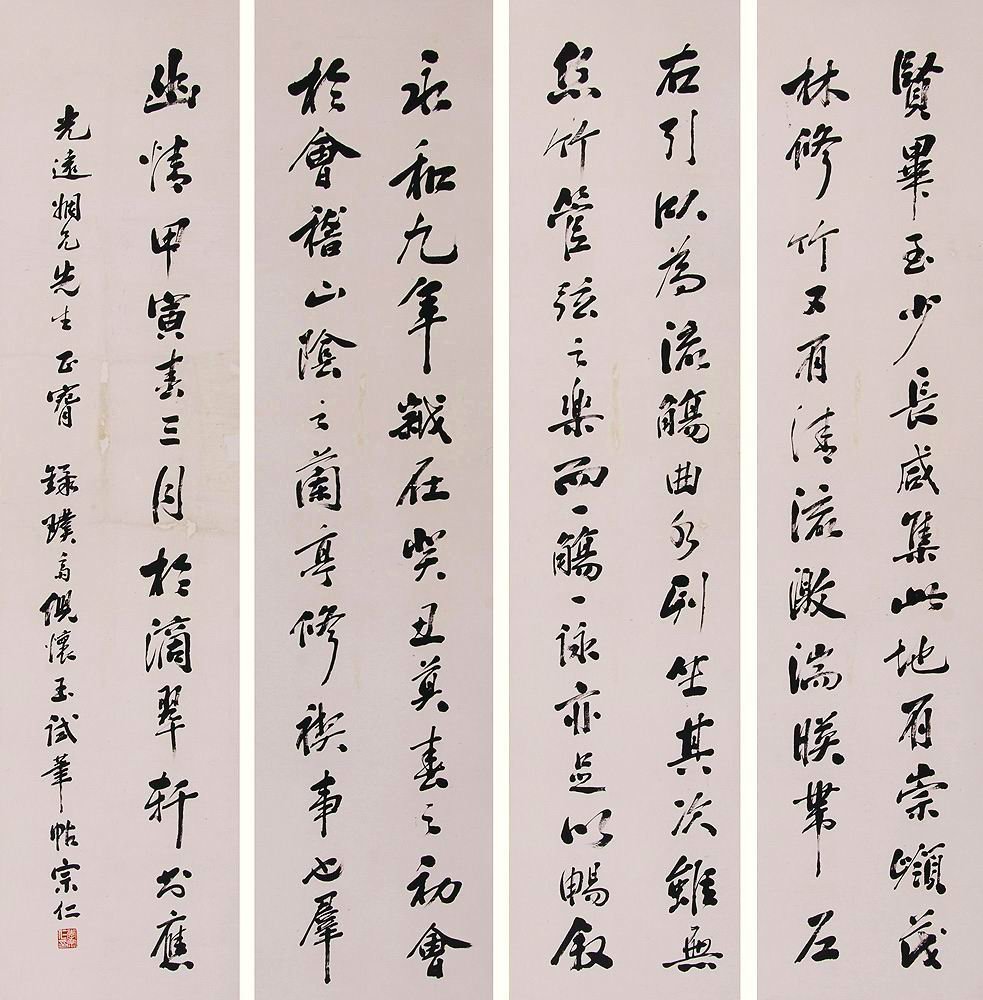 永和九年歲在癸丑莫春之初會
於會稽山陰之蘭亭修禊事也羣
賢畢至少長咸集此地有崇嶺茂
林修竹又有清流激湍暎帶左
右引以為流觴曲水列坐其次雖無
絲竹管弦之樂而一觴一詠亦足以暢叙
幽情甲寅春三月於滴翠軒書應
光遠姻兄先生正 錄璞倪懷玉試筆帖宗仁